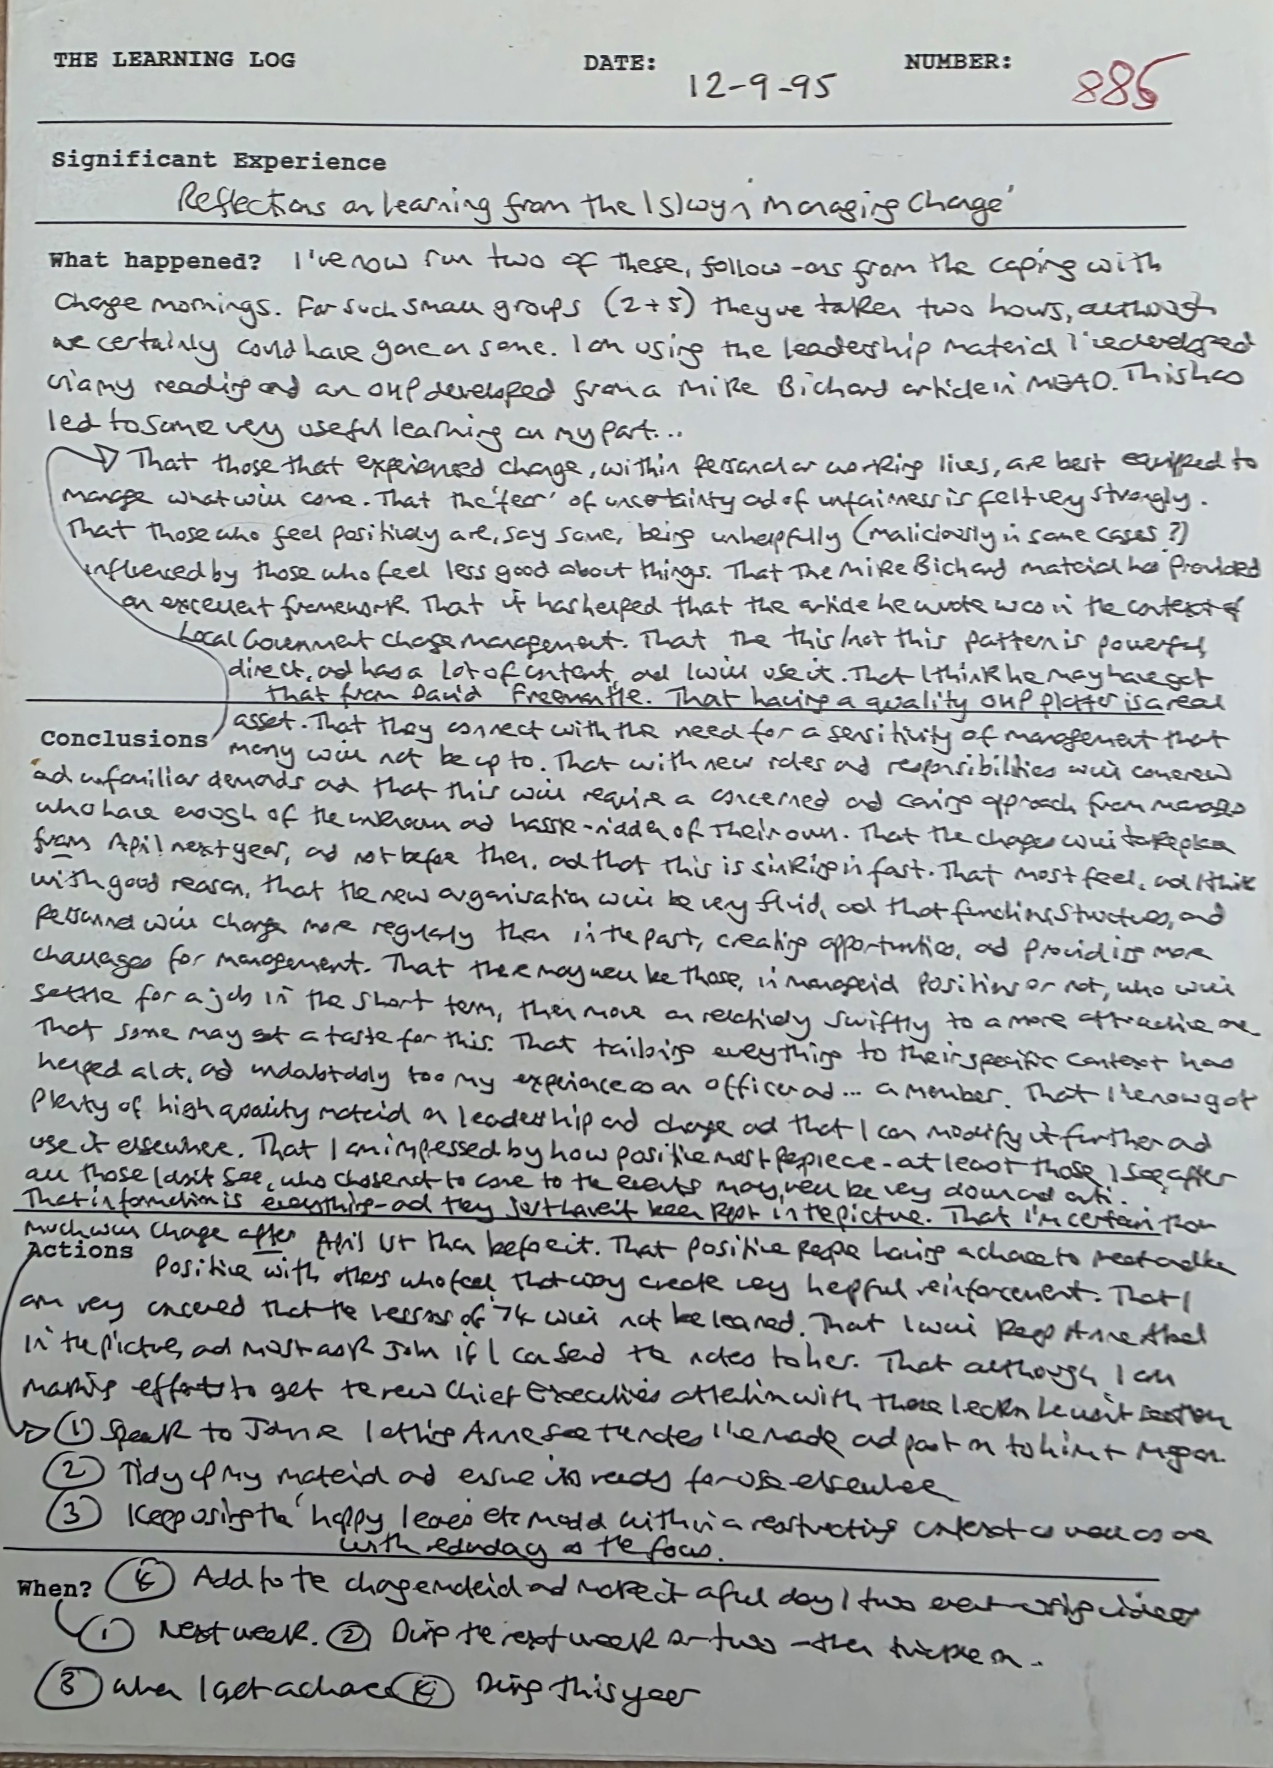 THE LEARNING LOG DATE: 12-9-95 NUMBER: 886
Significant Experience
Reflections on learning from the Islwyn 'Managing Change'
What happened? I've now run two of these, follow-ons from the coping with
Change mornings. For such small groups (2+5) they've taken two hours, although
we certainly could have gone on some. I am using the leadership material I've developed
via my reading and an OHP developed from a Mike Bichard article in MEAD. This has
led to some very useful learning on my part...
That those that experienced change, within personal or working lives, are best equipped to
manage what will come. That the 'fear' of uncertainty and of unfairness is felt very strongly.
That those who feel positively are, say some, being unhelpfully (maliciously in some cases?)
influenced by those who feel less good about things. That the Mike Bichard material has provided
an excellent framework. That it has helped that the article he wrote was in the context of
Local Government change management. That the this/not this pattern is powerful,
direct, and has a lot of content, and I will use it. That I think he may have got
that from David Freemantle. That having a quality OHP plotter is a real
asset. That they connect with the need for a sensitivity of management that
Conclusions many will not be up to. That with new roles and responsibilities will come new
and unfamiliar demands and that this will require a concerned and caring approach from managers
who have enough of the unknown and hassle-ridden of their own. That the changes will take place
from April next year, and not before then, and that this is sinking in fast. That most feel, and I think
with good reason, that the new organisation will be very fluid, and that functions, structures, and
personnel will change more regularly than in the past, creating opportunities, and providing more
challenges for management. That there may well be those, in managerial positions or not, who will
settle for a job in the short term, then move on relatively swiftly to a more attractive one
That some may get a taste for this. That tailoring everything to their specific context has
helped a lot, and undoubtably too my experience as an officer and... a member. That I've now got
plenty of high quality material on leadership and change and that I can modify it further and
use it elsewhere. That I am impressed by how positive most people are - at least those I see, after
all those I don't see, who chose not to come to the events may well be very down and anti.
That information is everything - and they just haven't been kept in the picture. That I'm certain that
much will change after April 1st than before it. That positive people having a chance to meet and be
Actions positive with others who feel that way create very helpful reinforcement. That I
am very concerned that the lessons of '74 will not be learned. That I will keep Anne Abel
in the picture, and must ask John if I can send the notes to her. That although I am
making efforts to get the new Chief Executive's attention with those
① Speak to John re letting Anne see the notes I've made and past on to him +
② Tidy up my material and ensure its ready for use elsewhere
③ Keep using the 'happy leaver' etc model within a restructuring context as well as one
with redundancy as the focus.
When? ④ Add to the change material and make it a full day / two event using videos
① Next week. ② During the next week or two - then on.
③ When I get a chance ④ During this year